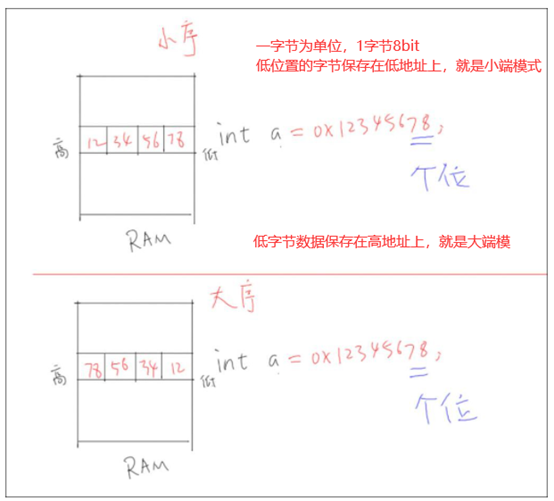 小序
一字节为单位，1字节8bit
低位置的字节保存在低地址上，就是小端模式
高 12 34 56 78 低 int a = 0x12345678;
个位
RAM
低字节数据保存在高地址上，就是大端模
大序
高 78 56 34 12 低 int a = 0x12345678;
个位
RAM